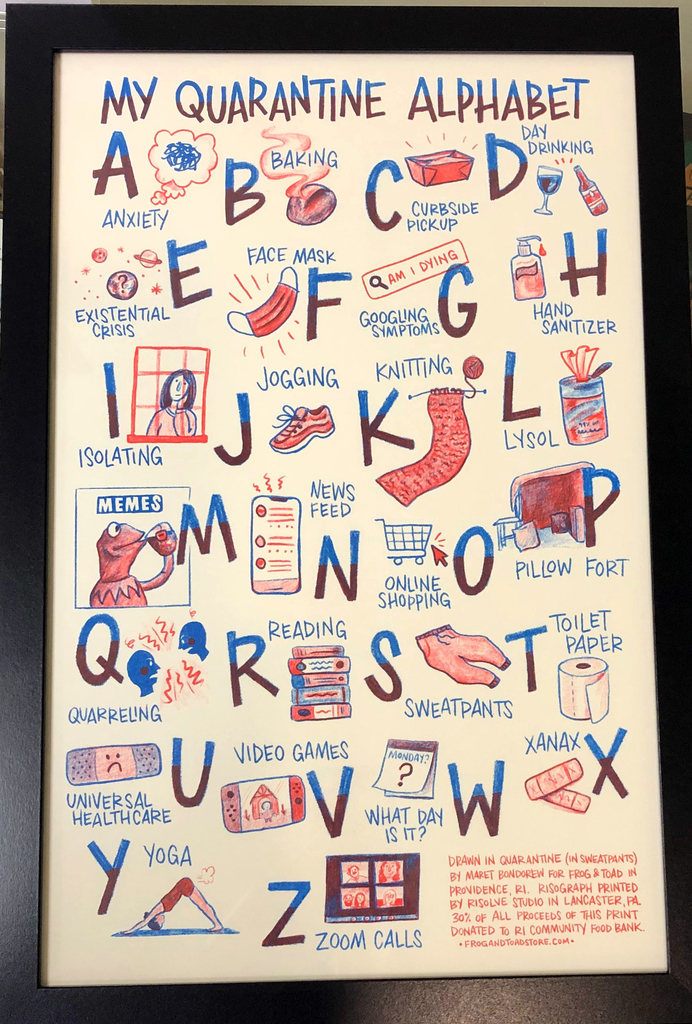 MY QUARANTINE ALPHABET
A
ANXIETY
B
BAKING
C
CURBSIDE
PICKUP
D
DAY
DRINKING
?
EXISTENTIAL
CRISIS
E
FACE MASK
F
AM I DYING
GOOGLING
SYMPTOMS
G
H
HAND
SANITIZER
I
ISOLATING
J
JOGGING
K
KNITTING
L
LYSOL
MEMES
M
NEWS
FEED
N
ONLINE
SHOPPING
O
P
PILLOW FORT
Q
QUARRELING
R
READING
S
SWEATPANTS
T
TOILET
PAPER
UNIVERSAL
HEALTHCARE
U
VIDEO GAMES
V
MONDAY?
?
WHAT DAY
IS IT?
W
XANAX
X
Y
YOGA
Z
ZOOM CALLS
DRAWN IN QUARANTINE (IN SWEATPANTS)
BY MARET BONDOREW FOR FROG & TOAD IN
PROVIDENCE, RI. RISOGRAPH PRINTED
BY RISOLVE STUDIO IN LANCASTER, PA.
30% OF ALL PROCEEDS OF THIS PRINT
DONATED TO RI COMMUNITY FOOD BANK.
• FROGANDTOADSTORE.COM •